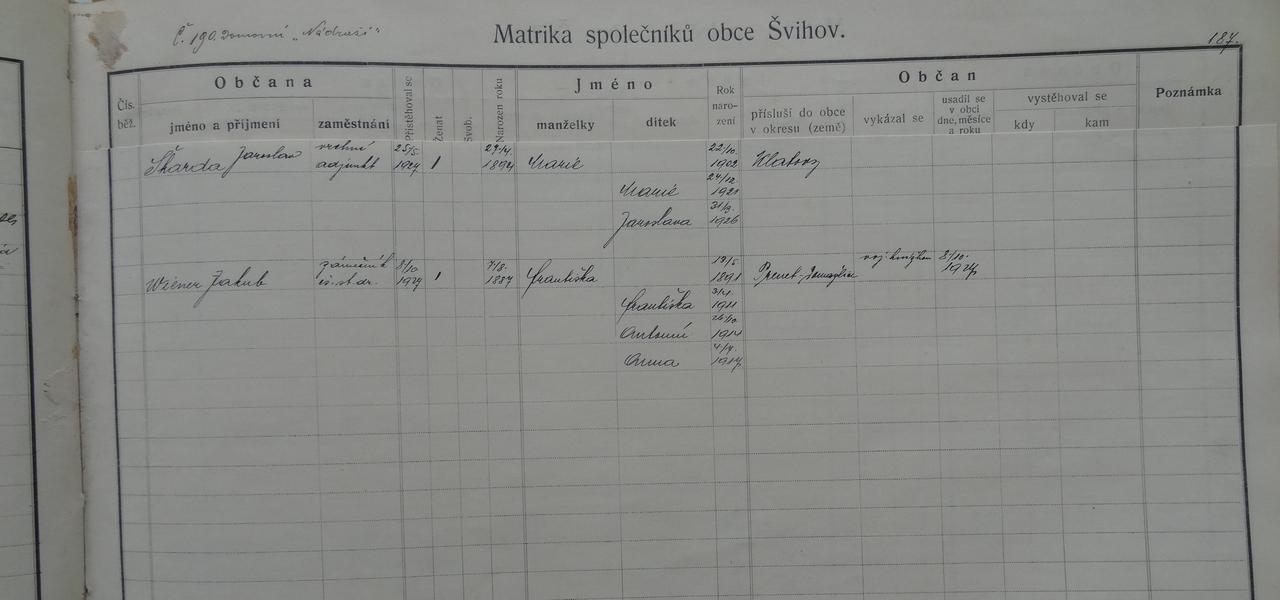 Č. 190. Domovní „Nádraží"
Matrika společníků obce Švihov.
187.
Čís. běž.
Občana
jméno a příjmení
zaměstnání
Přistěhoval se
Ženat
Svob.
Narozen roku
Jméno
manželky
dítek
Rok naro- zení
Občan
přísluší do obce v okresu (země)
vykázal se
usadil se v obci dne, měsíce a roku
vystěhoval se
kdy
kam
Poznámka
Škarda Jaroslav vrchní adjunkt 25/5. 1927 1 1894 Marie 22/10. 1902 Klatovy
Marie 24/12. 1921
Jaroslava 1926
Wiener Jakub zámečník čs. st. dr. 1 7/8. 1887 Františka 1891
Františka 1911
Antonín 1914
Anna 1917